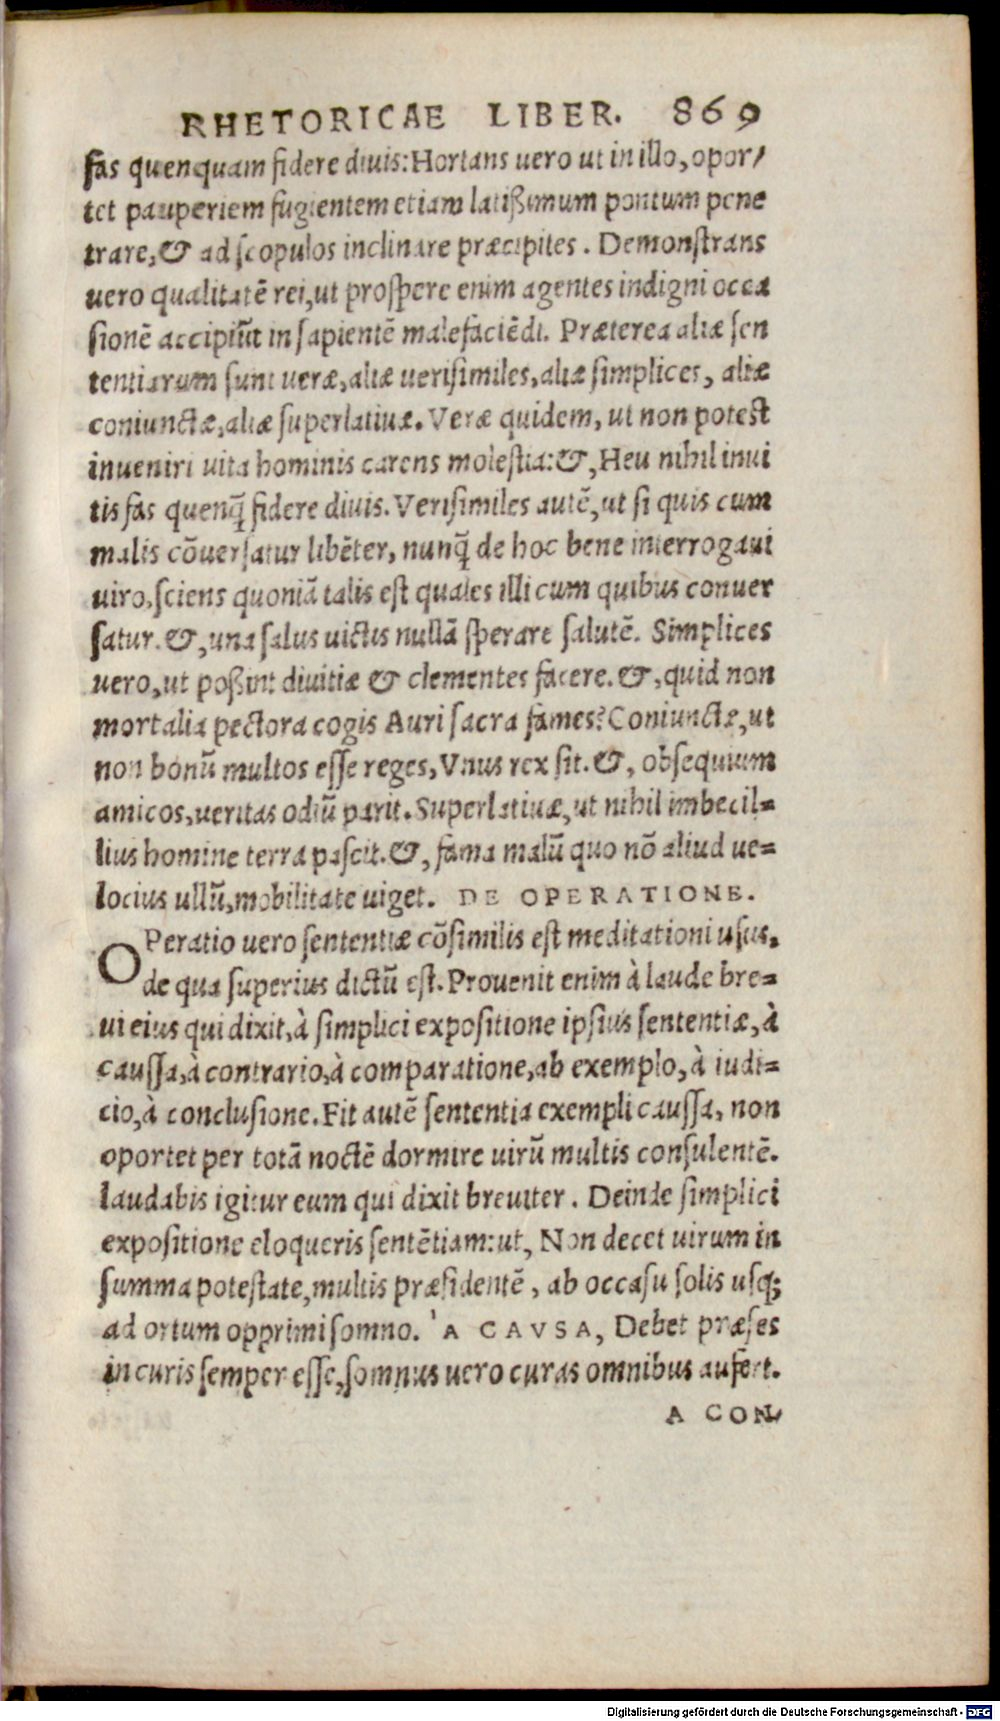 RHETORICAE LIBER. 869
fas quenquam fidere diuis: Hortans uero ut in illo, opor/
tet pauperiem fugientem etiam latißimum pontum pene
trare, & ad scopulos inclinare præcipites. Demonstrans
uero qualitatē rei, ut prospere enim agentes indigni occa
sionē accipiūt in sapientē malefaciēdi. Præterea aliæ sen
tentiarum sunt ueræ, aliæ uerisimiles, aliæ simplices, aliæ
coniunctæ, aliæ superlatiuæ. Veræ quidem, ut non potest
inueniri uita hominis carens molestia: &, Heu nihil inui
tis fas quenq̄ fidere diuis. Verisimiles autē, ut si quis cum
malis cōuersatur libēter, nunq̄ de hoc bene interrogaui
uiro, sciens quoniā talis est quales illi cum quibus conuer
satur. &, una salus uictis nullā sperare salutē. Simplices
uero, ut poßint diuitiæ & clementes facere. &, quid non
mortalia pectora cogis Auri sacra fames? Coniunctæ, ut
non bonū multos esse reges, Vnus rex sit. &, obsequium
amicos, ueritas odiū parit. Superlatiuæ, ut nihil imbecil=
lius homine terra pascit. &, fama malū quo nō aliud ue=
locius ullū, mobilitate uiget. DE OPERATIONE.
OPeratio uero sententiæ cōsimilis est meditationi usus,
de qua superius dictū est. Prouenit enim à laude bre=
ui eius qui dixit, à simplici expositione ipsius sententiæ, à
caussa, à contrario, à comparatione, ab exemplo, à iudi=
cio, à conclusione. Fit autē sententia exempli caussa, non
oportet per totā noctē dormire uirū multis consulentē.
laudabis igitur eum qui dixit breuiter. Deinde simplici
expositione eloqueris sentētiam: ut, Non decet uirum in
summa potestate, multis præsidentē, ab occasu solis usq;
ad ortum opprimi somno. 'A CAVSA, Debet præses
in curis semper esse, somnus uero curas omnibus aufert.
A CON/
Digitalisierung gefördert durch die Deutsche Forschungsgemeinschaft - DFG